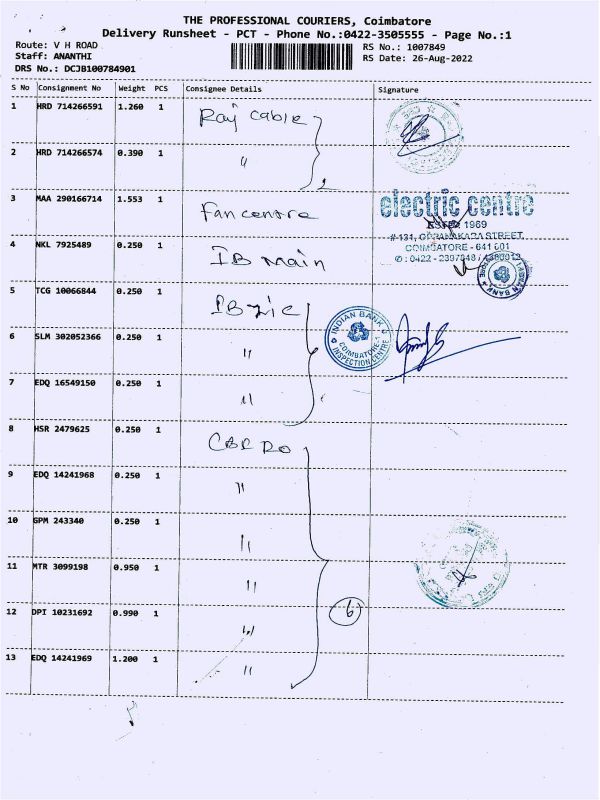 THE PROFESSIONAL COURIERS, Coimbatore
Delivery Runsheet - PCT - Phone No.:0422-3505555 - Page No.:1
Route: V H ROAD RS No.: 1007849
Staff: ANANTHI RS Date: 26-Aug-2022
DRS No.: DCJB100784901
S No Consignment No Weight PCS Consignee Details Signature
1 HRD 714266591 1.260 1 Raj Cable
2 HRD 714266574 0.390 1 "
2
3 MAA 290166714 1.553 1 Fan centre
electric centre
ESTED 1969
# 131, OPPANAKARA STREET,
COIMBATORE - 641 001
4 NKL 7925489 0.250 1 IB main
5 TCG 10066844 0.250 1 IB
INDIAN BANK
COIMBATORE-1
INSPECTION CENTRE
6 SLM 302052366 0.250 1 "
7 EDQ 16549150 0.250 1 "
8 HSR 2479625 0.250 1
9 EDQ 14241968 0.250 1 "
10 GPM 243340 0.250 1 "
11 MTR 3099198 0.950 1 "
6
12 DPI 10231692 0.990 1 "
13 EDQ 14241969 1.200 1 "